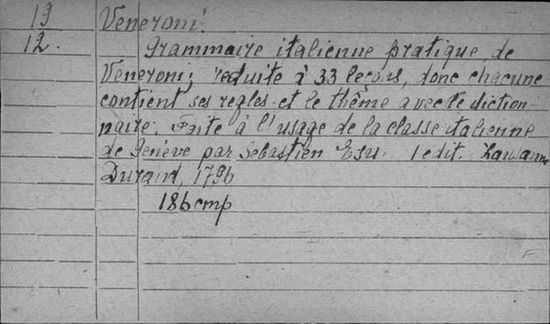 13 Veneroni.
12. Grammaire italienne pratique de
Veneroni; reduite à 33 lecons, donc chacune
contient ses regles et le thême avec le diction-
naire. Faite à l'usage de la classe italienne
de Genève par Sebastien Esu. 1 edit. Lausanne
Durand, 1796
186 стр